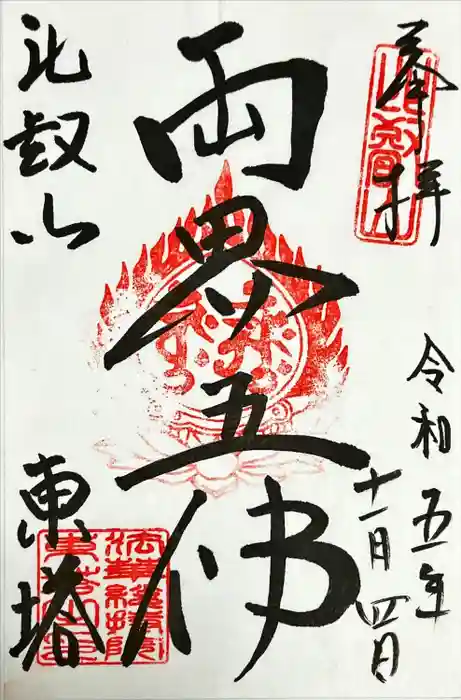 奉拝
令和五年
十一月四日
両界五仏
比叡山
東塔